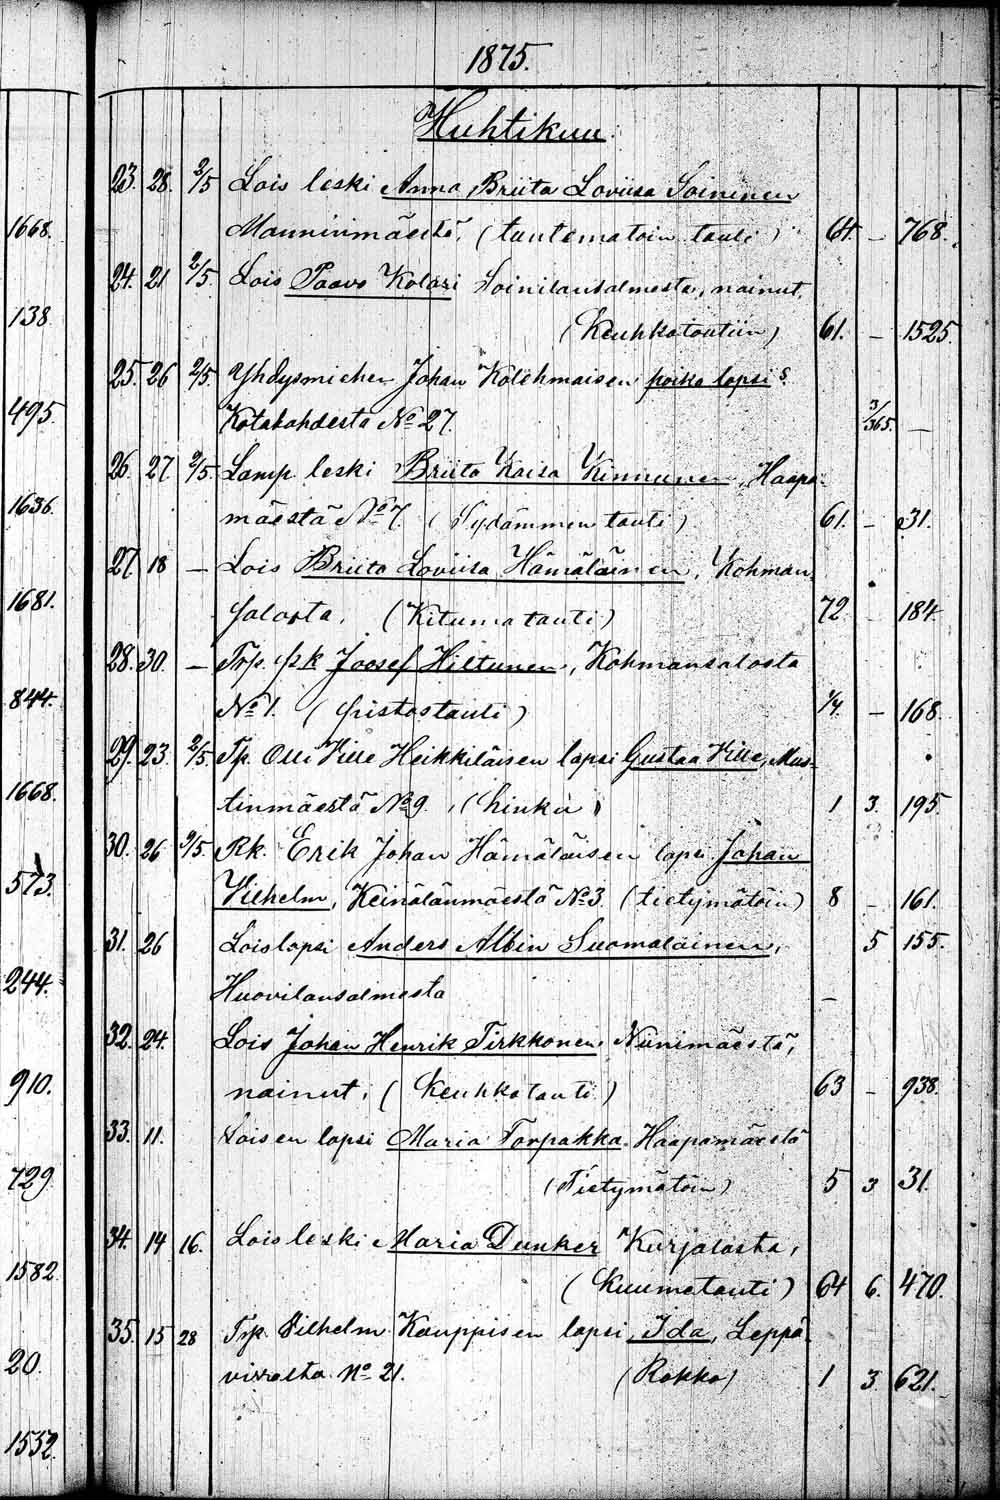 1875.
Huhtikuu.
23. 28. 2/5 Lois leski Anna Briita Loviisa Soininen
1668. Manninmäestä, (tuntematoin tauti) 64. — 768.
24. 21 2/5. Lois Paavo Kolari Soinilansalmesta, nainut,
138. (Keuhkotautiin) 61. — 1525.
25. 26 2/5. Yhdysmiehen Johan Kolehmaisen poika lapsi
495. Kotalahdesta No 27. 3/365. —
26. 27 2/5. Lamp. leski Briita Kaisa Kinnunen, Haapa-
1636. mäestä No 7. (Sydämmen tauti) 61. — 31.
27 18 — Lois Briita Loviisa Hämäläinen, Kohman
1681. salosta, (Kituma tauti) 72. 184.
28. 30. — Trp. Joosef Hiltunen, Kohmansalosta
844. No 1. (pistostauti) — 168.
29. 23. 2/5 Tp. Olli Wille Heikkiläisen lapsi Gustaa Wille, Mus-
1668. tinmäestä No 9. (hinku) 1 3. 195
30. 26 2/5. Rk. Erik Johan Hämäläisen lapsi Johan
573. Vilhelm, Keinälänmäestä No 3. (tietymätöin) 8 — 161.
31. 26 Loislapsi Anders Albin Suomalainen, 5 155.
244. Huovilansalmesta —
32. 24. Lois Johan Henrik Tirkkonen Niinimäestä,
910. nainut, (Keuhkotauti) 63 — 938.
33. 11. Loisen lapsi Maria Torpakka Haapamäestä
729. (Tietymätöin) 5 3 31.
34. 14 16. Lois leski Maria Dunker Kurjalasta,
1582. (Kuumetauti) 64 6. 470.
35. 15 28 Trp. Vilhelm Kauppisen lapsi Ida, Leppä-
20. virralta No 21. (Rokko) 1 3. 621.
1552.